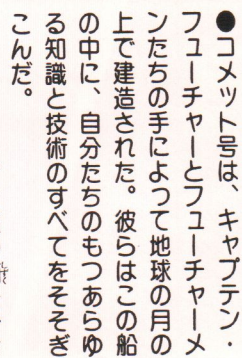 ●コメット号は、キャプテン・
フューチャーとフューチャーメ
ンたちの手によって地球の月の
上で建造された。彼らはこの船
の中に、自分たちのもつあらゆ
る知識と技術のすべてをそそぎ
こんだ。